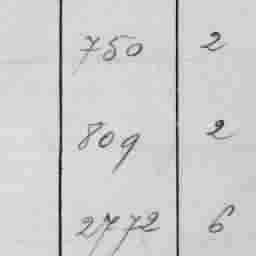 750 2
809 2
2772 6